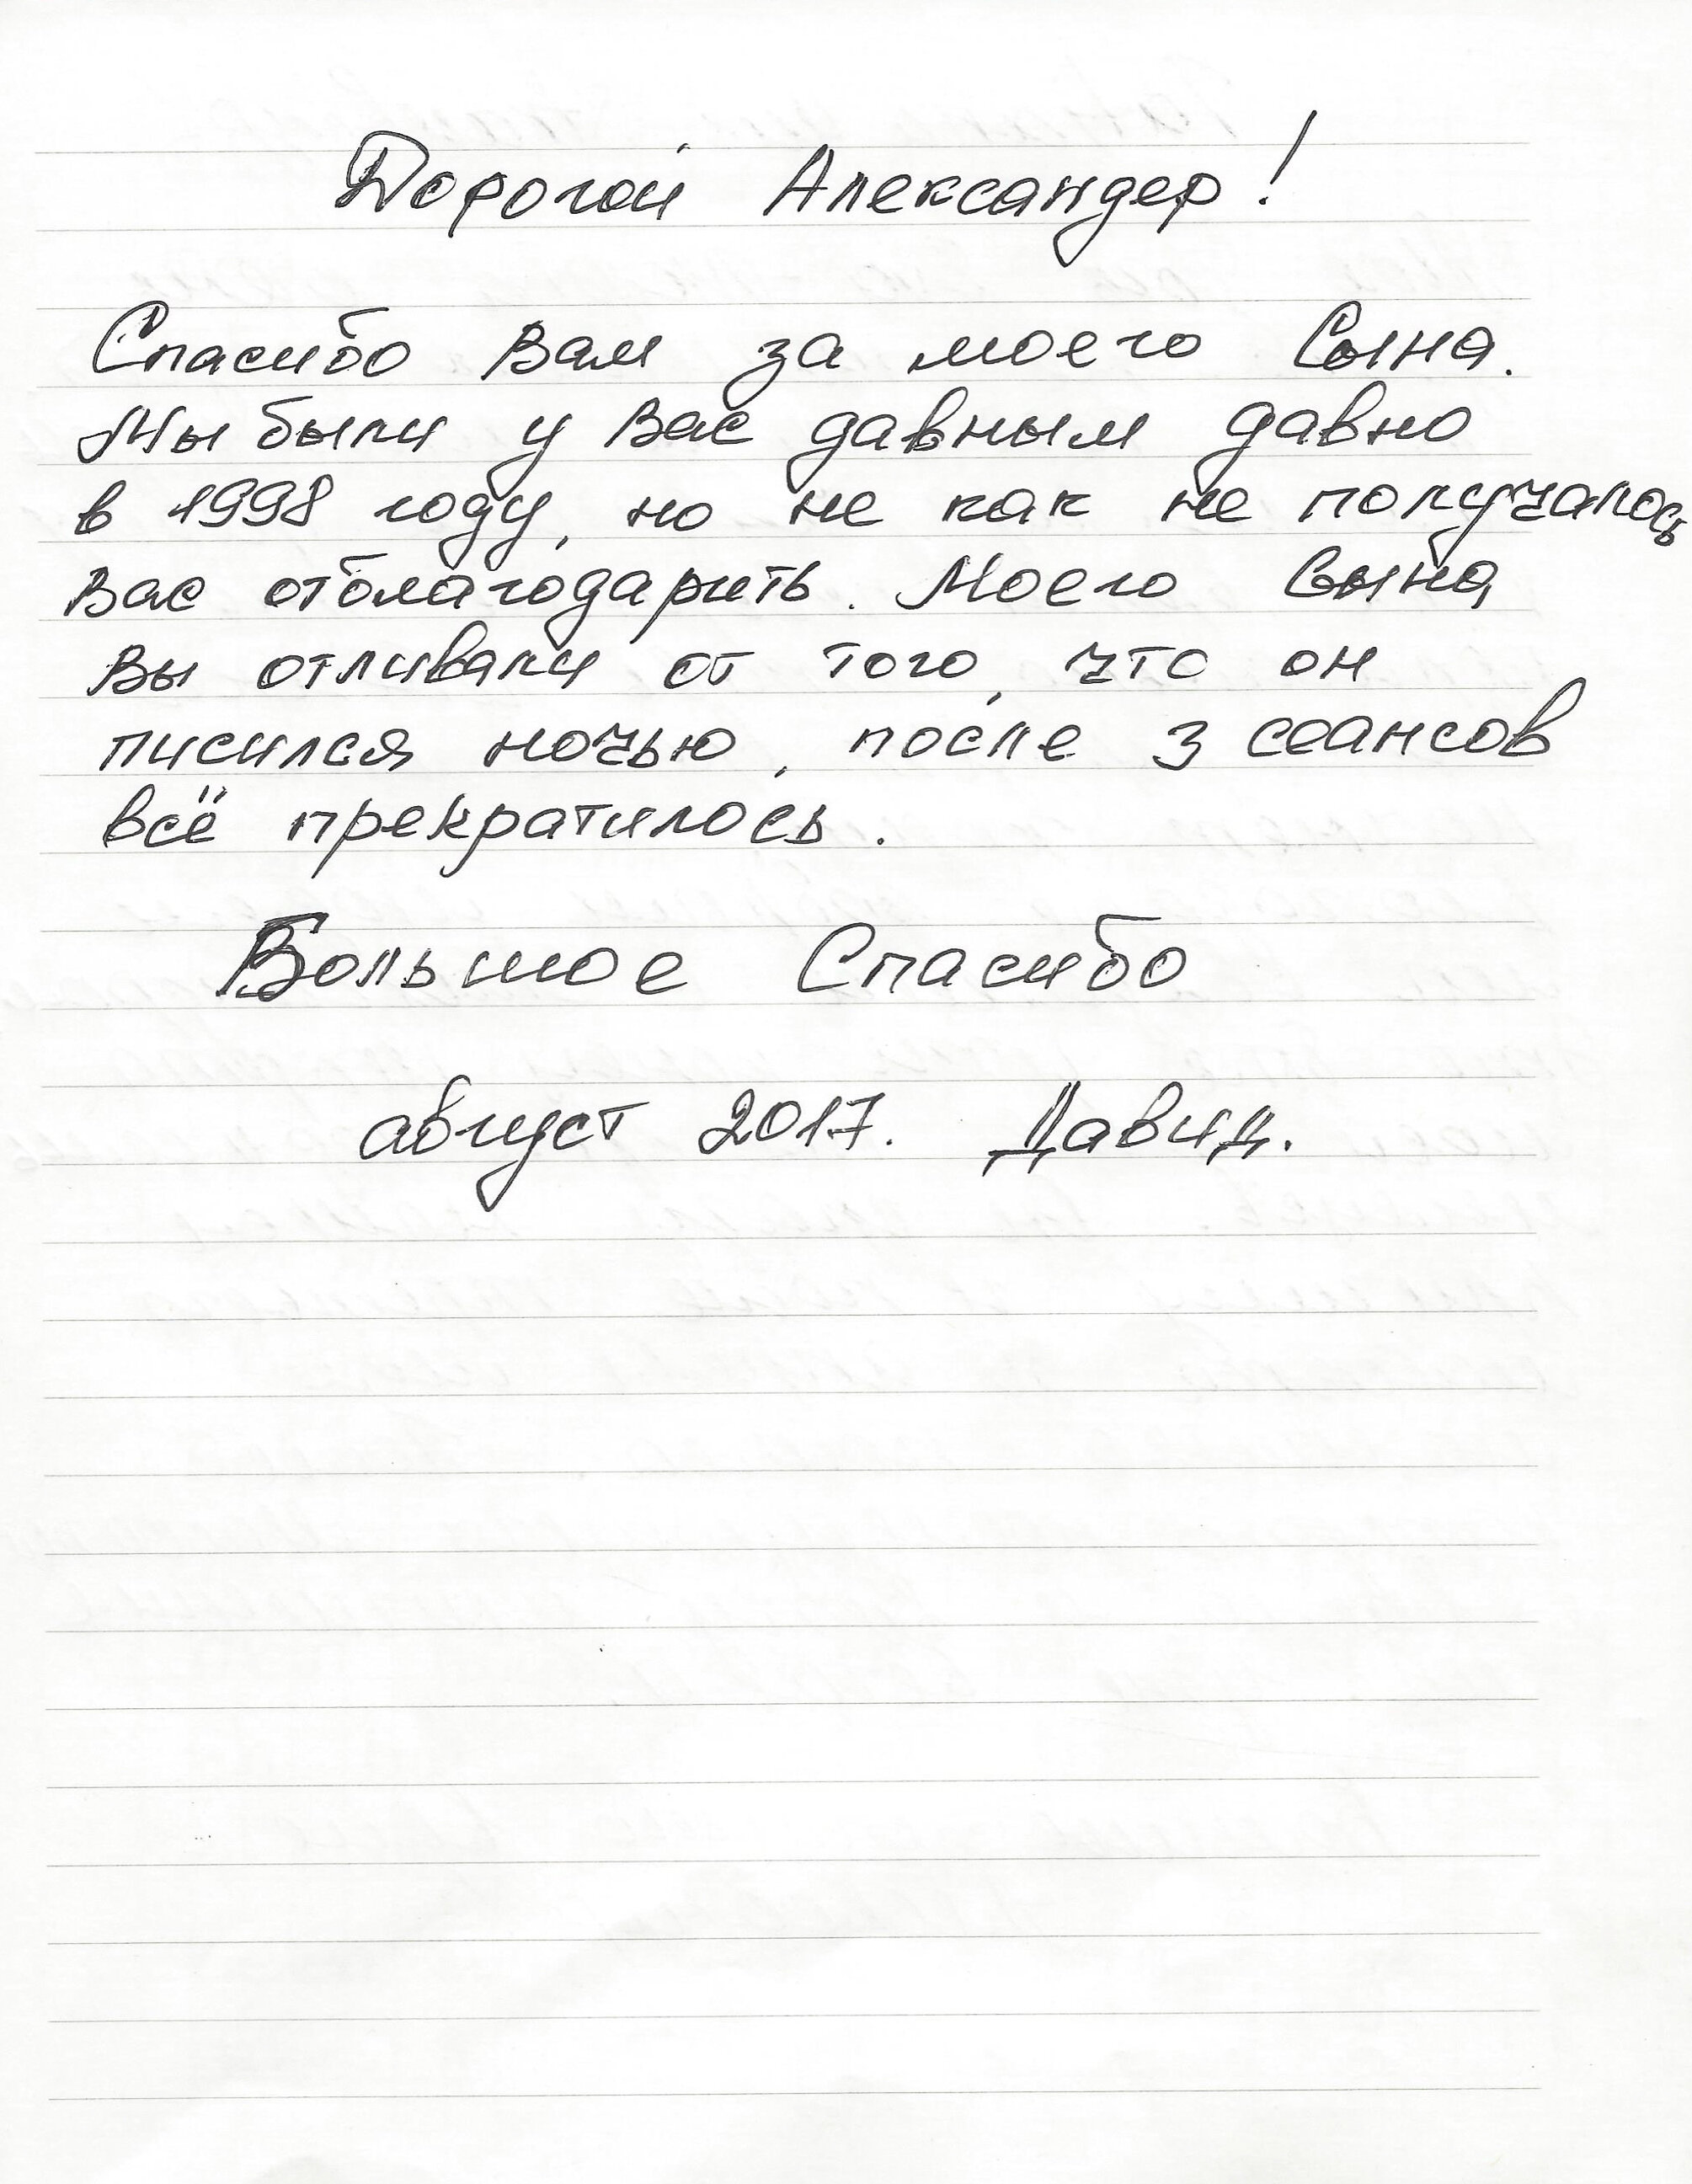 Дорогой Александер!
Спасибо Вам за моего Сына.
Мы были у Вас давным давно
в 1998 году, но не как не получалось
Вас отблагодарить. Моего Сына
Вы отливали от того, что он
писился ночью, после 3 сеансов
всё прекратилось.
Большое Спасибо
август 2017. Давид.